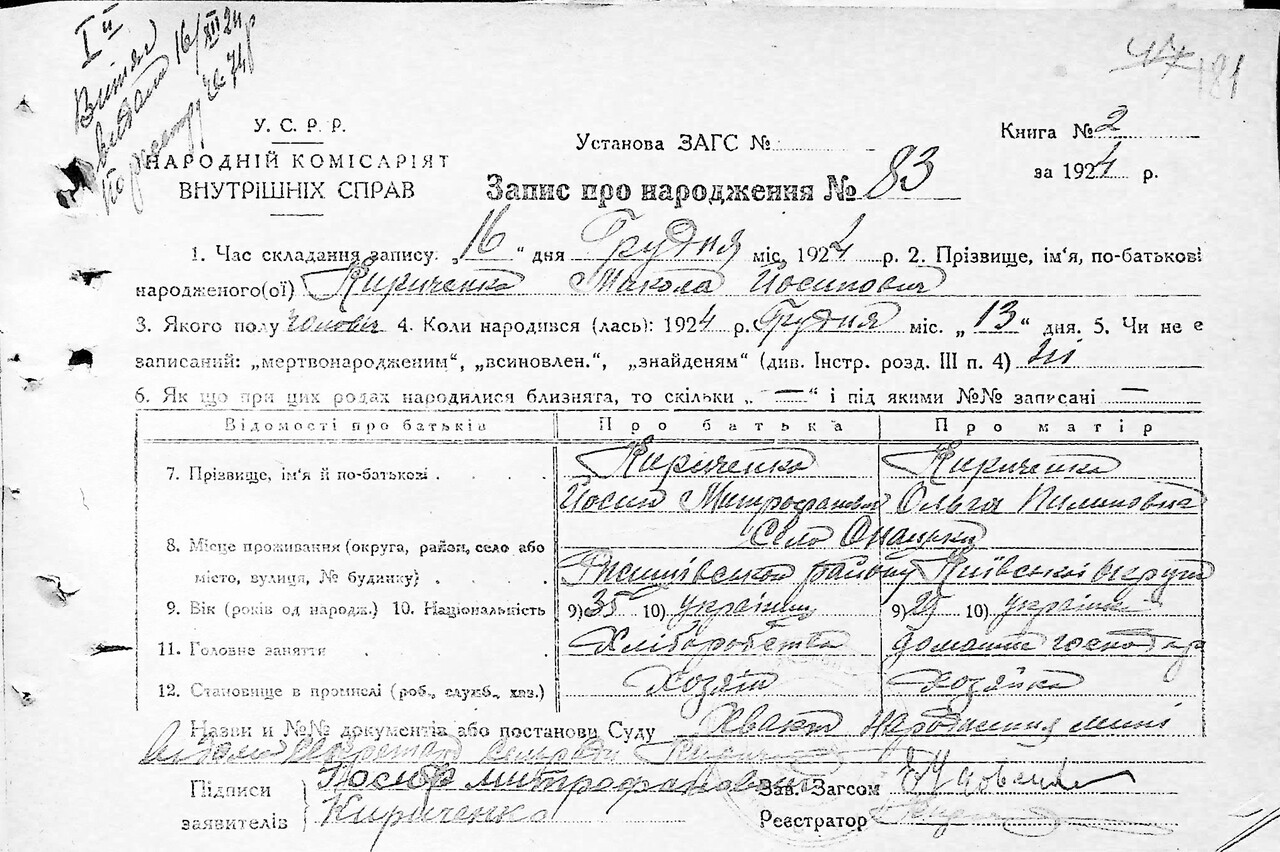 Iй
Витяг
видат 16/XII 24 р
По реєстру № 74
181
У. С. Р. Р.
НАРОДНІЙ КОМІСАРІЯТ
ВНУТРІШНІХ СПРАВ
Установа ЗАГС №
Книга № 2
за 1924 р.
Запис про народження № 83
1. Час складання запису: „16“ дня Грудня міс. 1924 р. 2. Прізвище, ім'я, по-батькові
народженого(ої) Кириченко Микола Йосипович
3. Якого полу чоловіч 4. Коли народився (лась): 1924 р. Грудня міс. „13“ дня. 5. Чи не є
записаний: „мертвонародженим“, „всиновлен.“, „знайденям“ (див. Інстр. розд. III п. 4) ні
6. Як що при цих родах народилися близнята, то скільки „—“ і під якими №№ записані —
Відомості про батьків Про батька Про матір
7. Прізвище, ім'я й по-батькові Кириченко Кириченко
Йосип Митрофанович Ольга Пилиповна
8. Місце проживання (округа, район, село або Село
місто, вулиця, № будинку) району Київської округи
9. Вік (років од народж.) 10. Національність 9) 35 10) українец 9) 25 10) українка
11. Головне заняття Хліборобство домашнє господар
12. Становище в промислі (роб., служб., хаз.) Хозяїн Хозяйка
Назви и №№ документів або постанови Суду
Підписи
заявителів
Иосиф митрофанович
Кириченко
Зав. Загсом
Реєстратор